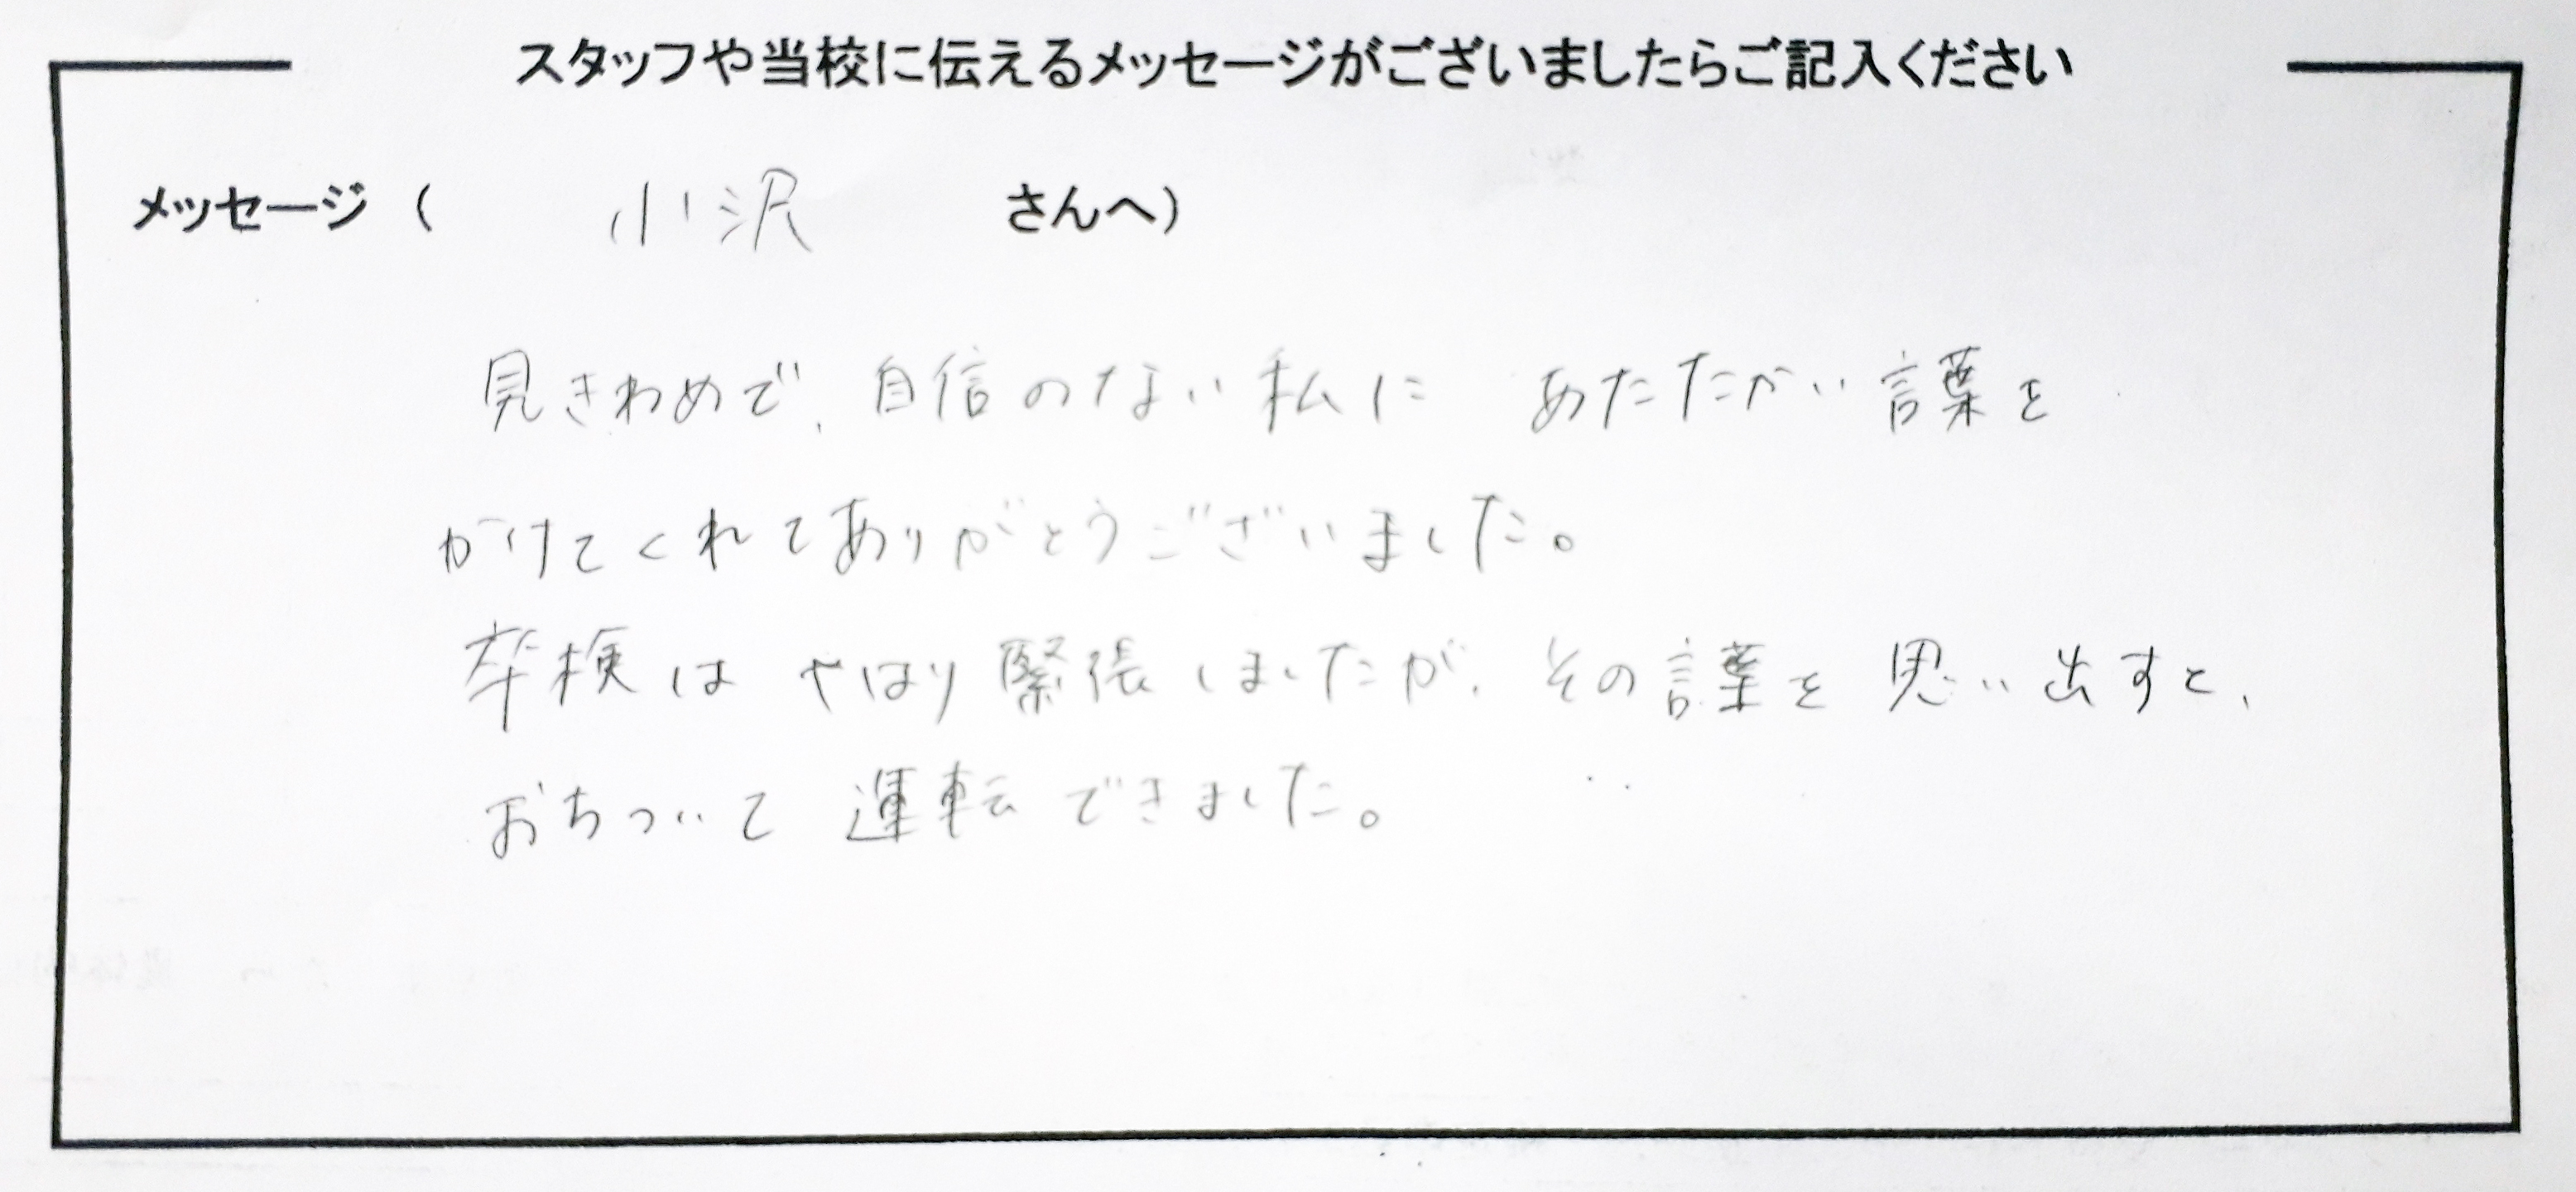 スタッフや当校に伝えるメッセージがございましたらご記入ください
メッセージ ( 小沢 さんへ)
見きわめで、自信のない私に あたたかい言葉を
かけてくれてありがとうございました。
卒検は やはり緊張しましたが、その言葉を思い出すと、
おちついて 運転できました。